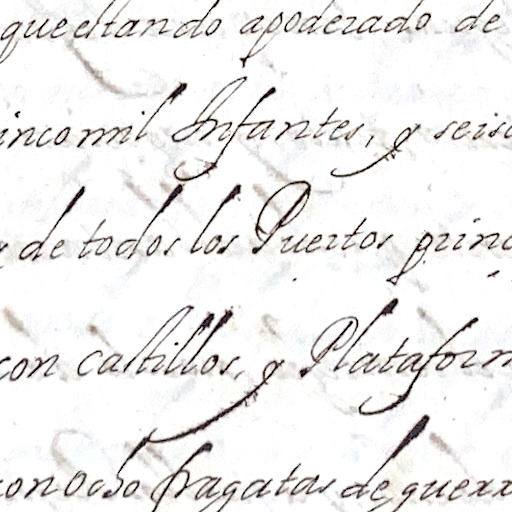 que estando apoderado de
inco mil Infantes, y seisc
de todos los Puertos princ
con castillos, y Plataform
con ocho fragatas de guerr